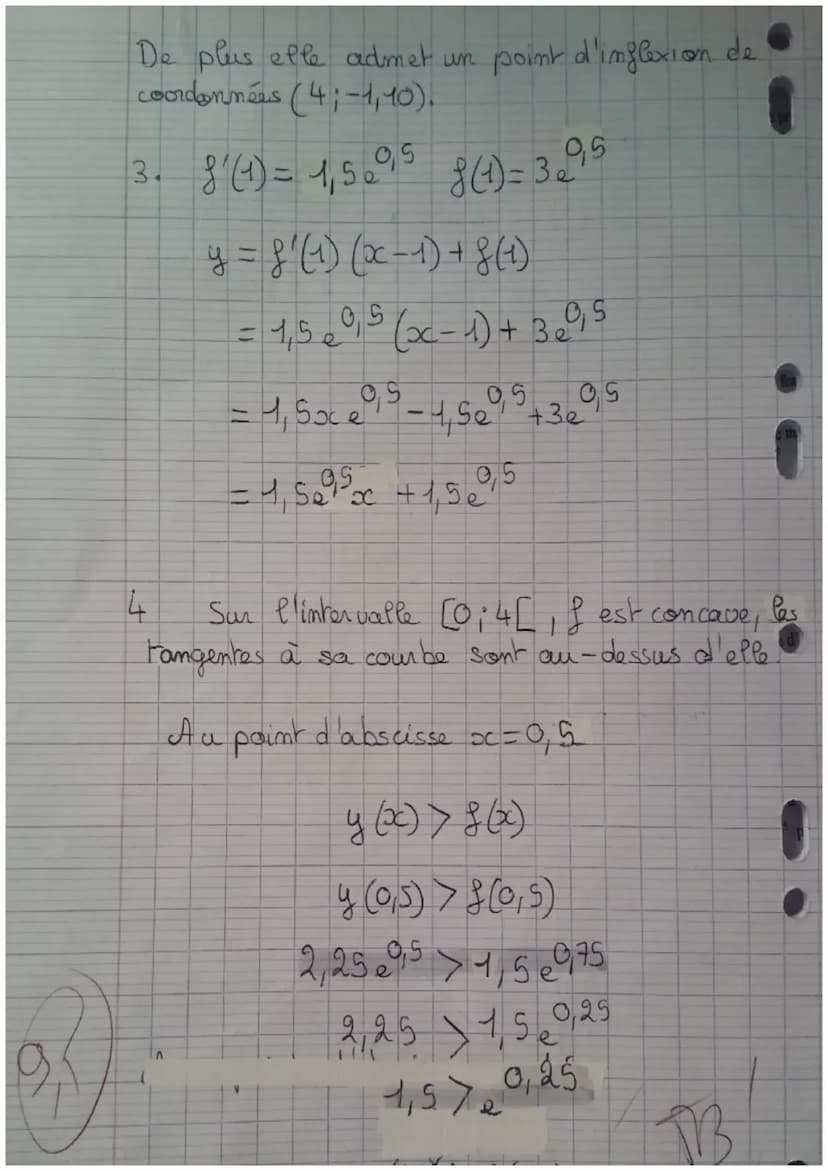 De plus elle admet un point d'inflexion de
coordonnées (4 ; -1,10).
3. f'(1) = 1,5e^0,5 f(1) = 3e^0,5
y = f'(1) (x-1) + f(1)
= 1,5e^0,5 (x-1) + 3e^0,5
= 1,5xe^0,5 - 1,5e^0,5 + 3e^0,5
= 1,5e^0,5 x + 1,5e^0,5
4 Sur l'intervalle [0 ; 4[ , f est concave, les
tangentes à sa courbe sont au-dessus d'elle.
Au point d'abscisse x = 0,5
y(x) > f(x)
y(0,5) > f(0,5)
2,25e^0,5 > 1,5e^0,75
2,25 > 1,5e^0,25
1,5 > e^0,25
TB